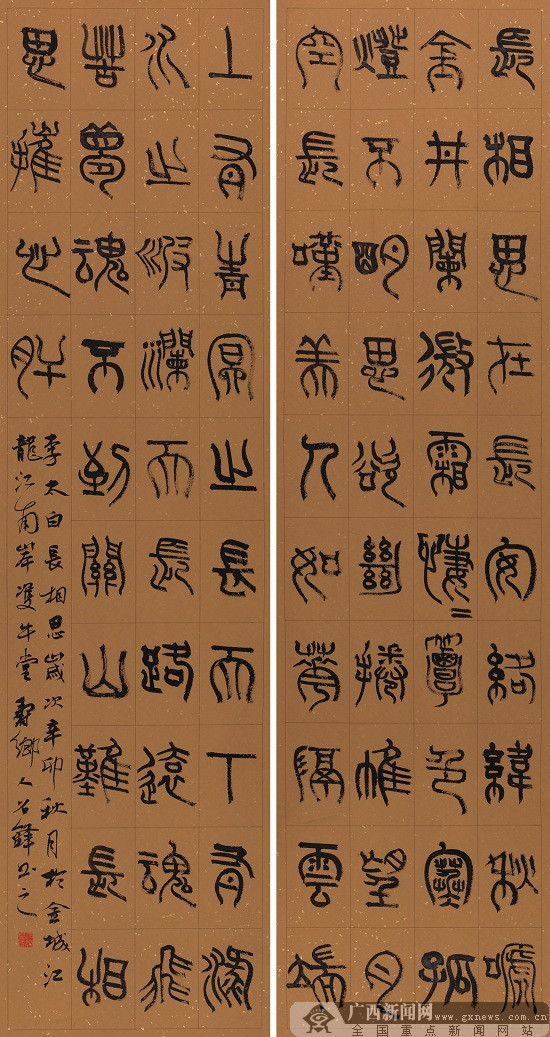 長相思在長安絡緯秋嗁
金井闌微霜淒〻簟色寒孤
燈不明思欲絕捲帷望月
空長嘆美人如華隔雲端
上有青冥之長天下有淥
水之波瀾天長路遠魂飛
苦夢魂不到關山難長相
思摧心肝
李太白長相思歲次辛卯秋月於金城江
龍江南岸雙牛堂壽鄉人石鋒書之
广西新闻网
www.gxnews.com.cn
全国重点新闻网站